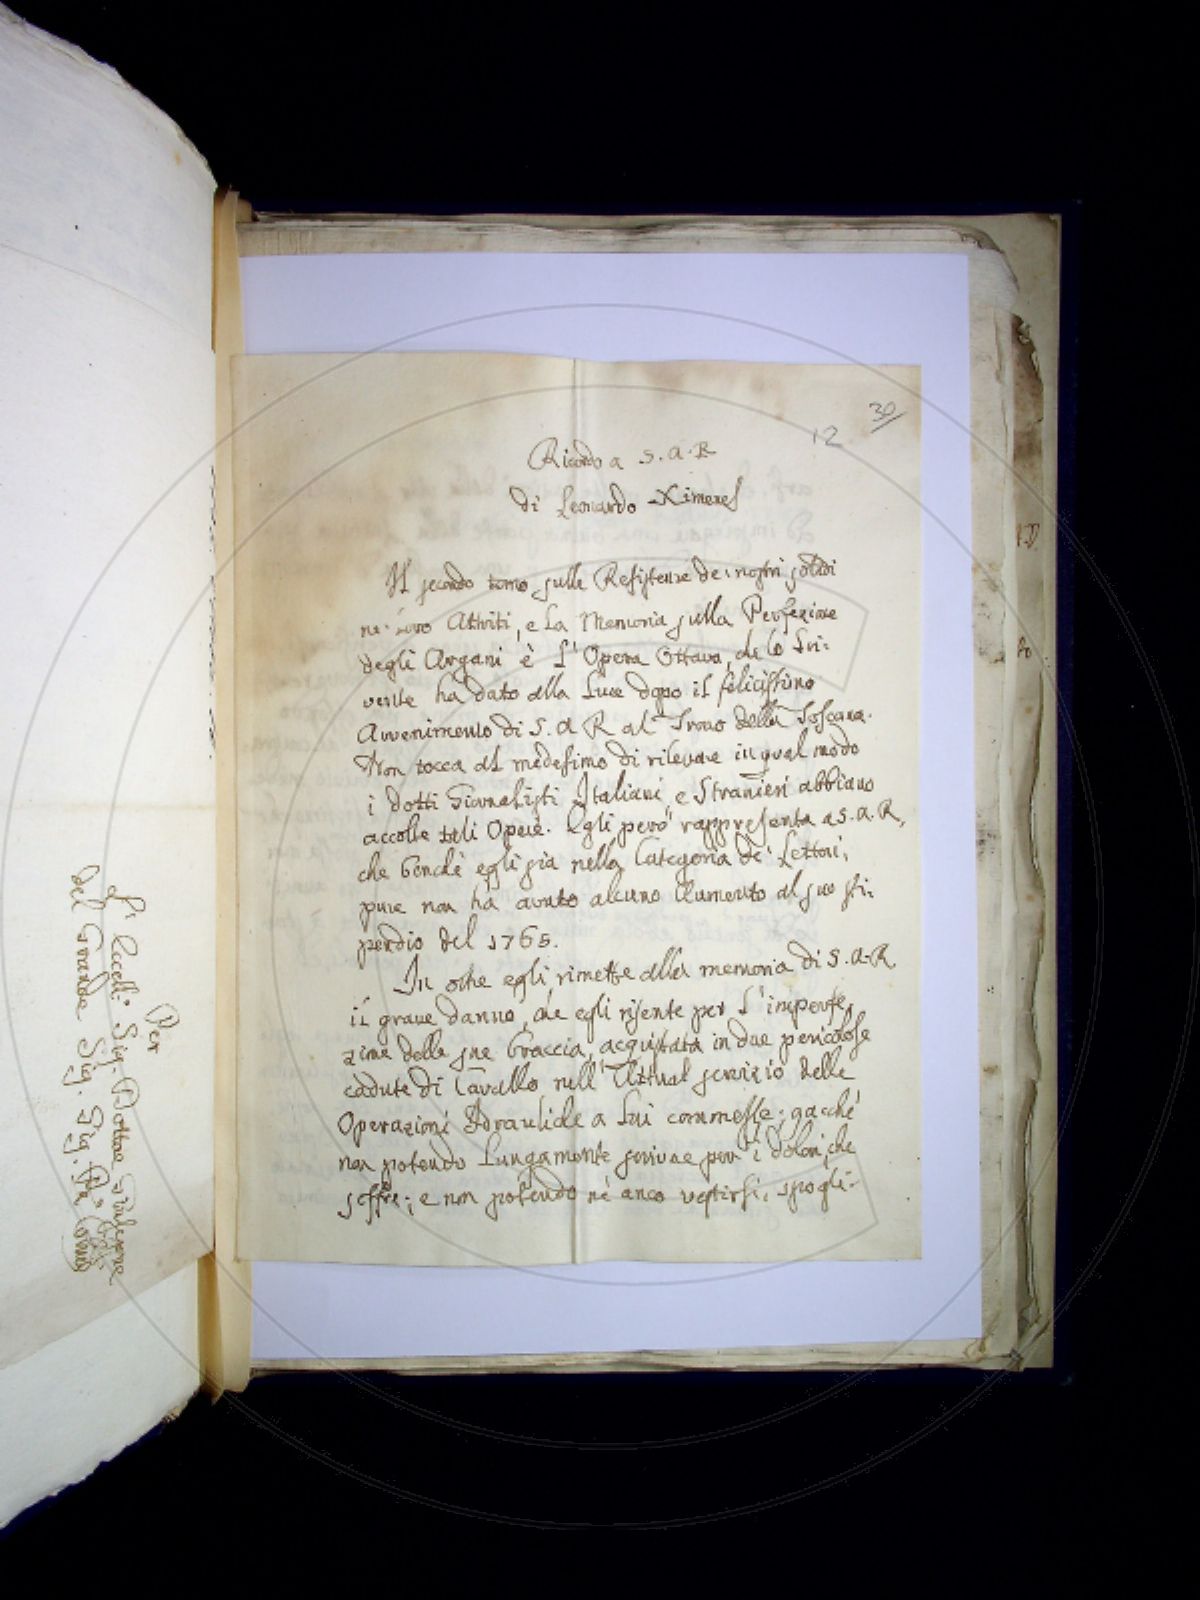 30
12
Ricordo a S. A. R
di Leonardo Ximenes
Il secondo tomo sulle Resistenze de' nostri solidi
ne' loro Attriti, e la Memoria sulla Perfezione
degli Argani è l'Opera Ottava, che lo Scri-
vente ha dato alla Luce dopo il felicissimo
Avvenimento di S. A R al Trono della Toscana.
Non tocca al medesimo di rilevare in qual modo
i dotti Giornalisti Italiani, e Stranieri abbiano
accolte tali Opere. Egli però rappresenta a S. A. R,
che benchè egli sia nella Categoria de' Lettori,
pure non ha avuto alcuno Aumento al suo sti-
pendio del 1765.
In oltre egli rimette alla memoria di S. A. R
il grave danno, che egli risente per l'imperfe-
zione delle sue braccia, acquistata in due pericolose
cadute di Cavallo nell'Attual servizio delle
Operazioni Idrauliche a lui commesse; gacchè
non potendo lungamente scrivere per i dolori, che
soffre; e non potendo nè anco vestirsi, spogli-
Per
L'Eccell.o Sig. Dottore Giuseppe
del Grande Sig. Sig. P.n